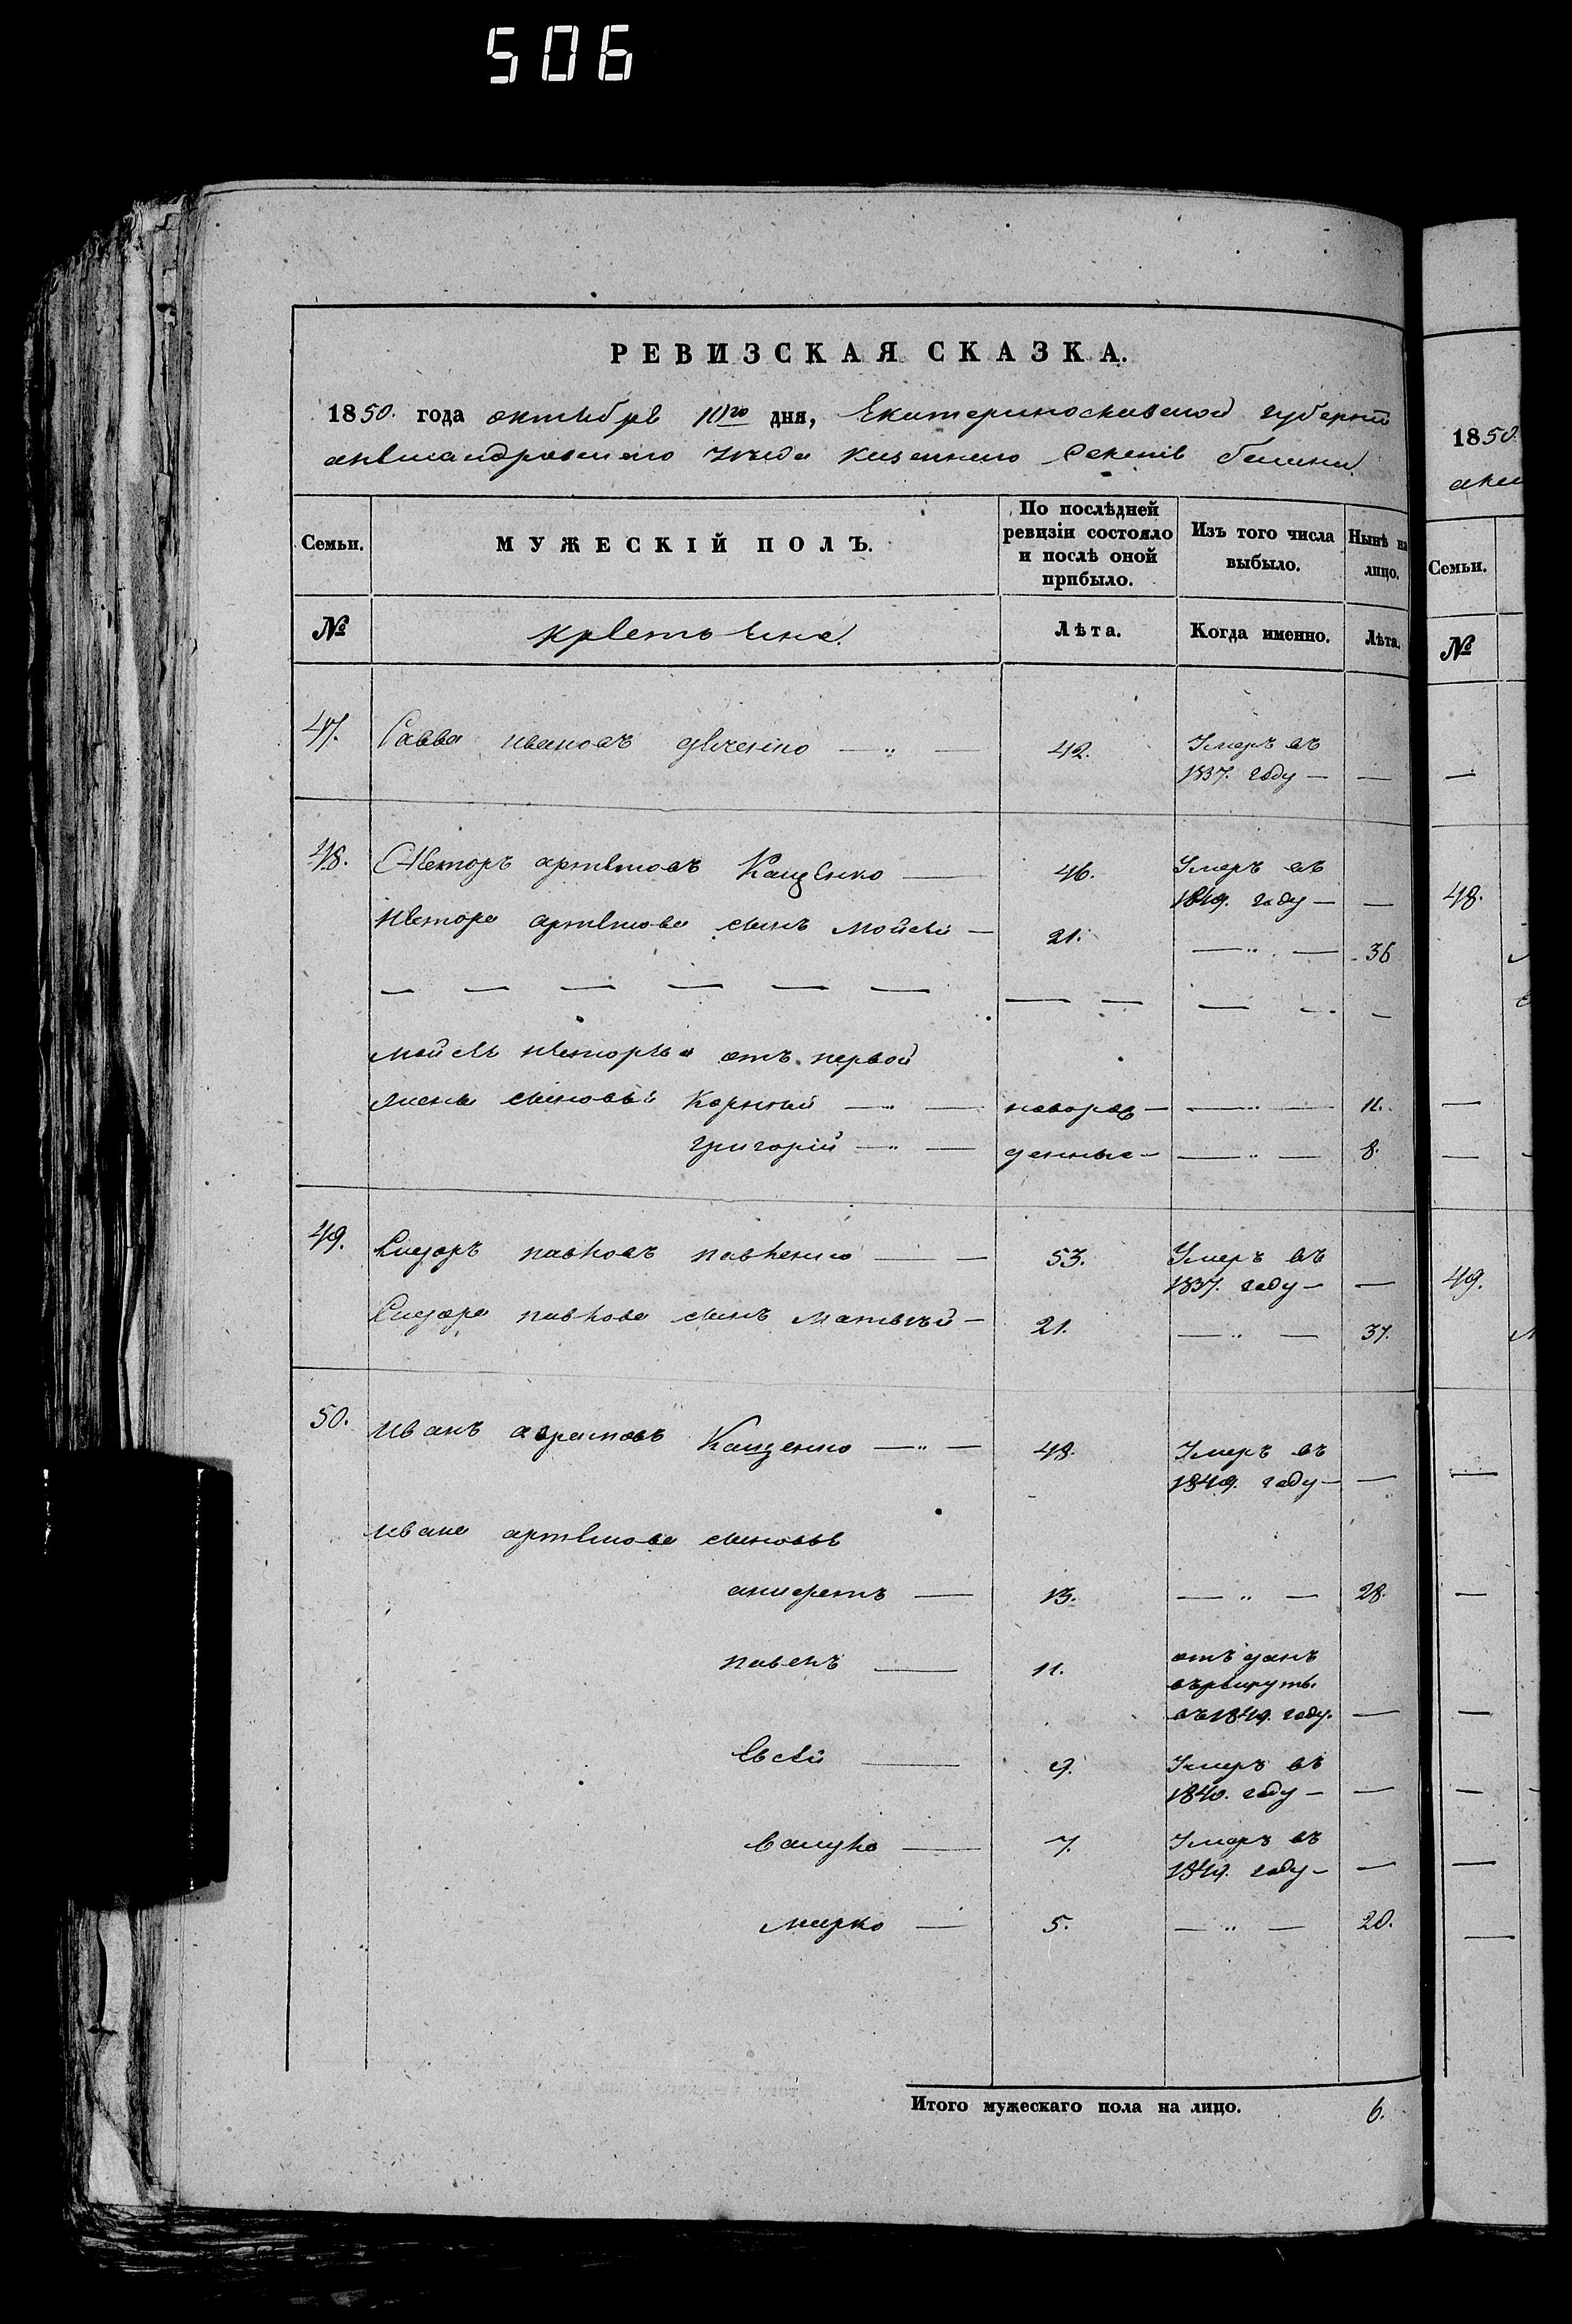 506
РЕВИЗСКАЯ СКАЗКА.
1850. года октября 10го дня, Екатеринославской губерніи
александровского уезда казенного селенія
Семьи.
МУЖЕСКІЙ ПОЛЪ.
По послѣдней ревизіи состояло и послѣ оной прибыло.
Изъ того числа выбыло.
Нынѣ на лицо.
№
Лѣта.
Когда именно.
Лѣта.
47. Савва ивановъ — „ — 42. Умеръ въ
1837. году — —
48. Несторъ артемовъ Кащенко — 46. Умеръ въ
1849. году — —
Нестора артемова сынъ мойсей — 21. — „ — 36
мойсея несторова отъ первой
жены сыновья Корнѣй — „ — новорож — — „ — 11.
григорій — „ — денные — — „ — 8.
49. Сидоръ павловъ павленко — — 53. Умеръ въ
1837. году — —
Сидора павлова сынъ матвѣй — 21. — „ — 37.
50. иванъ Кащенко — „ — 48. Умеръ въ
1849. году — —
ивана артемова сыновья
13. — „ — 28.
павелъ — 11. отъ данъ
въ рекруты
въ 1849. году. —
Евсей — 9. Умеръ въ
1840. году — —
7. Умеръ въ
году — —
мирко — 5. — „ — 20.
Итого мужескаго пола на лицо. 6.
1850.
Семьи.
№
48.
49.